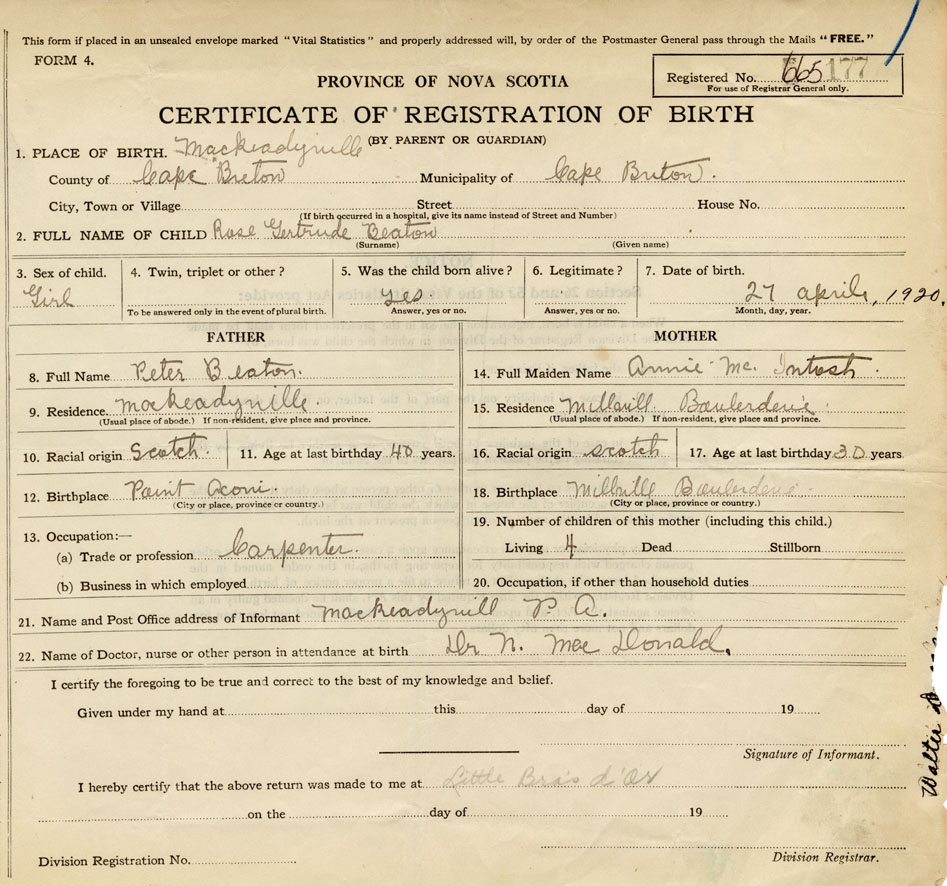 This form if placed in an unsealed envelope marked "Vital Statistics" and properly addressed will, by order of the Postmaster General pass through the Mails "FREE."
FORM 4.
Registered No. 665 177
For use of Registrar General only.
PROVINCE OF NOVA SCOTIA
CERTIFICATE OF REGISTRATION OF BIRTH
(BY PARENT OR GUARDIAN)
1. PLACE OF BIRTH. Mackeadyville
County of Cape Breton Municipality of Cape Breton.
City, Town or Village Street House No.
(If birth occurred in a hospital, give its name instead of Street and Number)
2. FULL NAME OF CHILD Rose Gertrude Beaton
(Surname) (Given name)
3. Sex of child. 4. Twin, triplet or other? 5. Was the child born alive? 6. Legitimate? 7. Date of birth.
Girl yes 27 april, 1920.
To be answered only in the event of plural birth. Answer, yes or no. Answer, yes or no. Month, day, year.
FATHER
8. Full Name Peter Beaton.
9. Residence. Mackeadyville.
(Usual place of abode.) If non-resident, give place and province.
10. Racial origin Scotch. 11. Age at last birthday 40 years.
12. Birthplace Point Aconi.
(City or place, province or country.)
13. Occupation:—
(a) Trade or profession Carpenter.
(b) Business in which employed
MOTHER
14. Full Maiden Name Annie Mc. Intosh.
15. Residence Millvill Boulerderie.
(Usual place of abode.) If non-resident, give place and province.
16. Racial origin scotch 17. Age at last birthday 30 years
18. Birthplace Millville Boulerderie.
(City or place, province or country.)
19. Number of children of this mother (including this child.)
Living 4 Dead Stillborn
20. Occupation, if other than household duties
21. Name and Post Office address of Informant Mackeadyvill P. A.
22. Name of Doctor, nurse or other person in attendance at birth Dr N. Mac Donald.
I certify the foregoing to be true and correct to the best of my knowledge and belief.
Given under my hand at this day of 19
Signature of Informant.
I hereby certify that the above return was made to me at Little Bras d'Or
on the day of 19
Division Registration No.
Division Registrar.
Walter